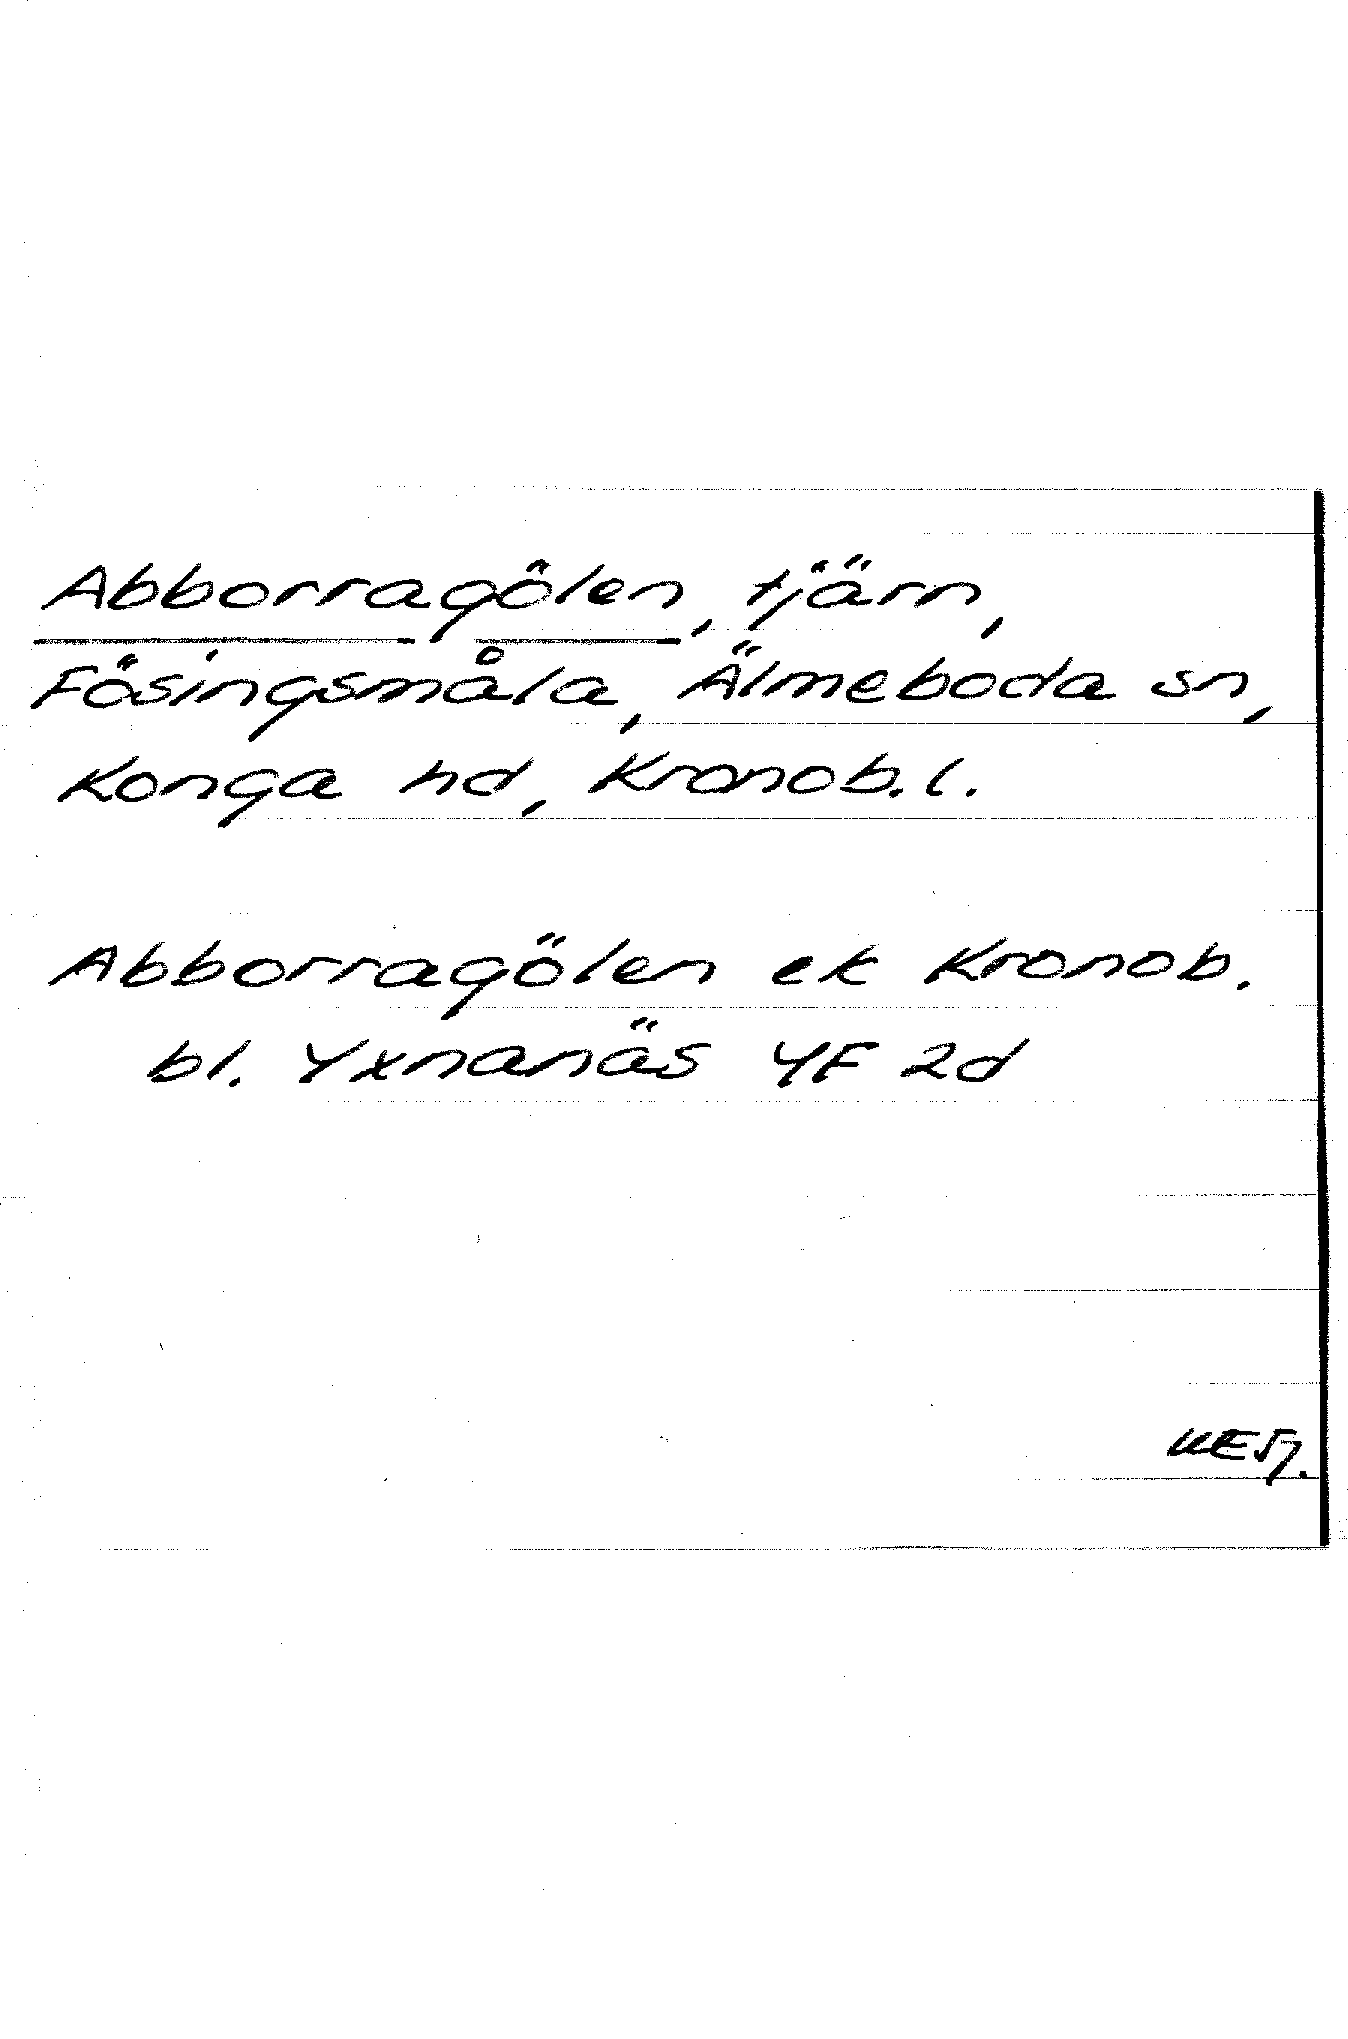 Abborragölen, tjärn,
Fösingsmåla, Älmeboda sn,
Konga hd, Kronob. l.
Abborragölen ek Kronob.
bl. Yxnanäs 4F 2d